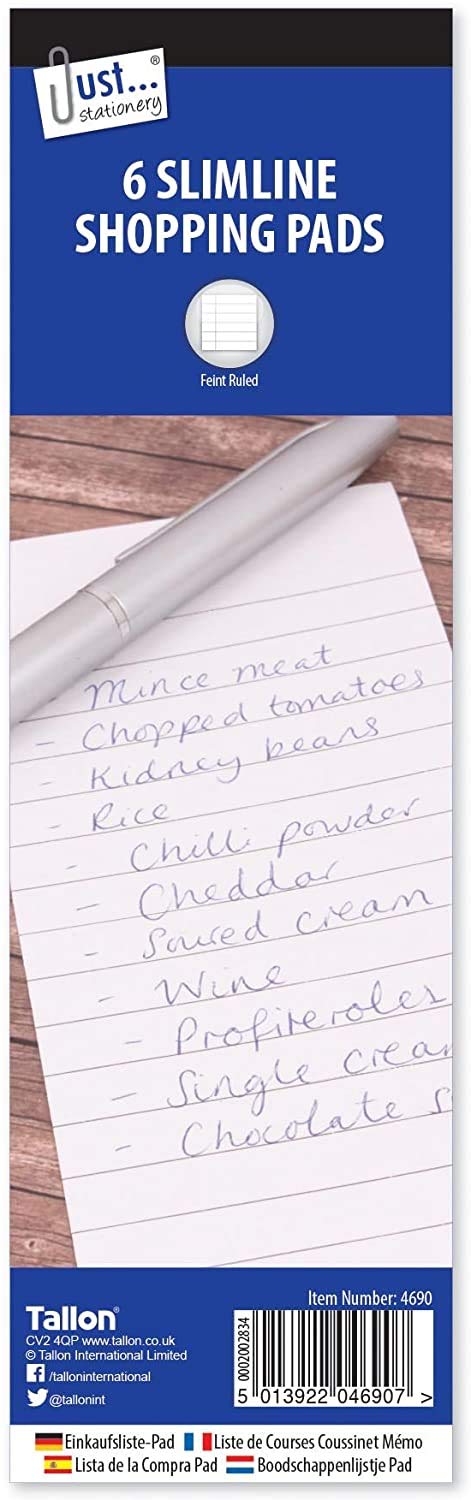 Just...®
stationery
6 SLIMLINE
SHOPPING PADS
Feint Ruled
- Mince meat
- Chopped tomatoes
- Kidney beans
- Rice
- Chilli powder
- Cheddar
- Soured cream
- Wine
- Profiteroles
- Single crea
- Chocolate s
Tallon®
CV2 4QP www.tallon.co.uk
© Tallon International Limited
/talloninternational
@tallonint
Item Number: 4690
0002002834
5 013922 046907 >
Einkaufsliste-Pad Liste de Courses Coussinet Mémo
Lista de la Compra Pad Boodschappenlijstje Pad